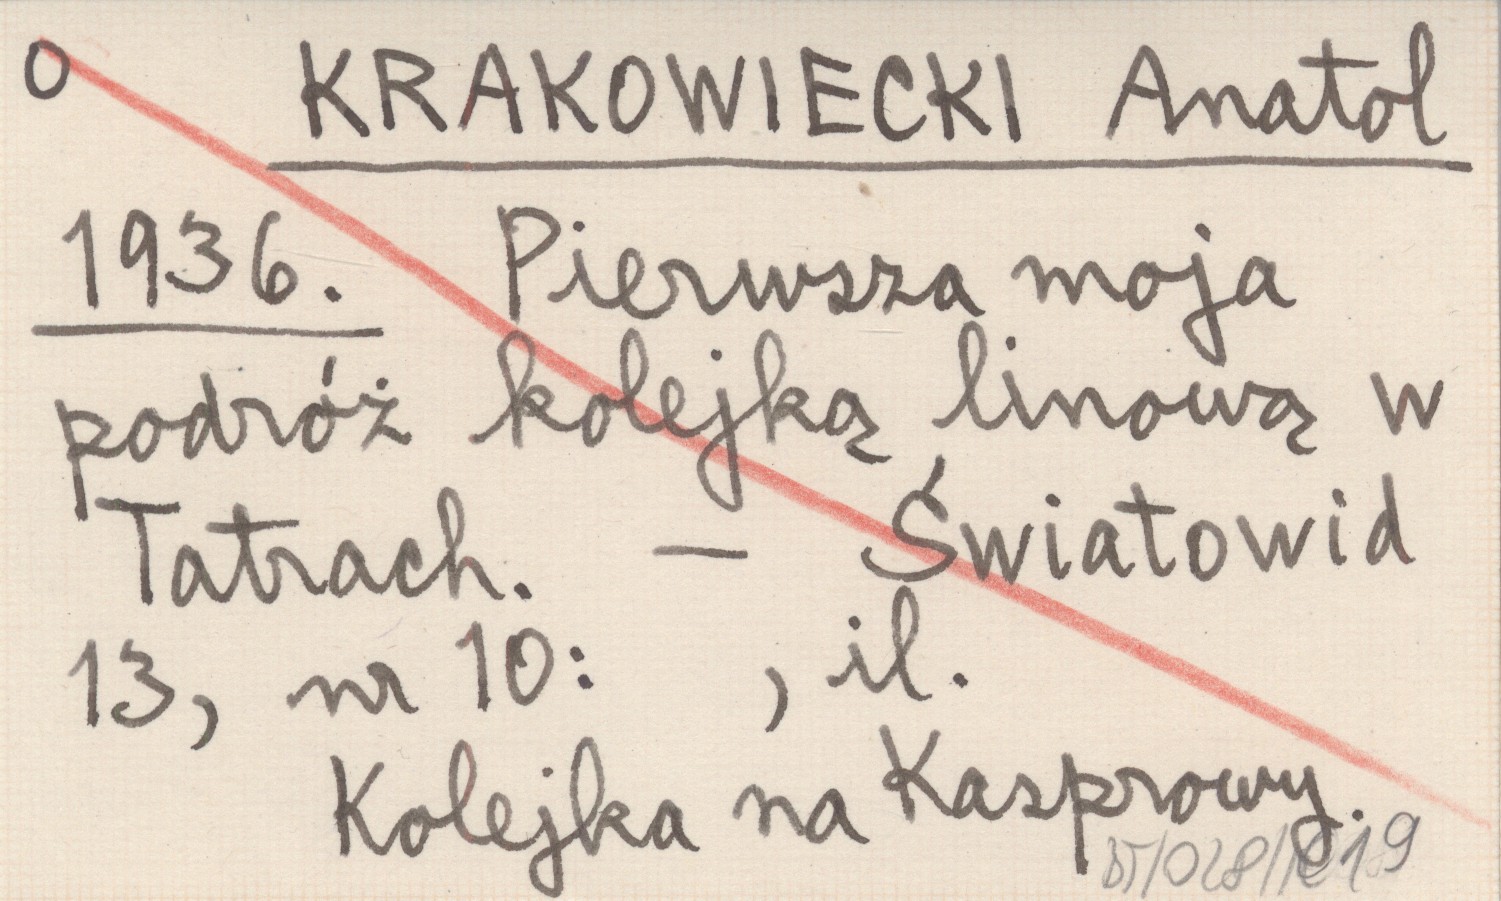 O KRAKOWIECKI Anatol
1936. Pierwsza moja
podróż kolejką linową w
Tatrach. — Światowid
13, nr 10: , il.
Kolejka na Kasprowy.